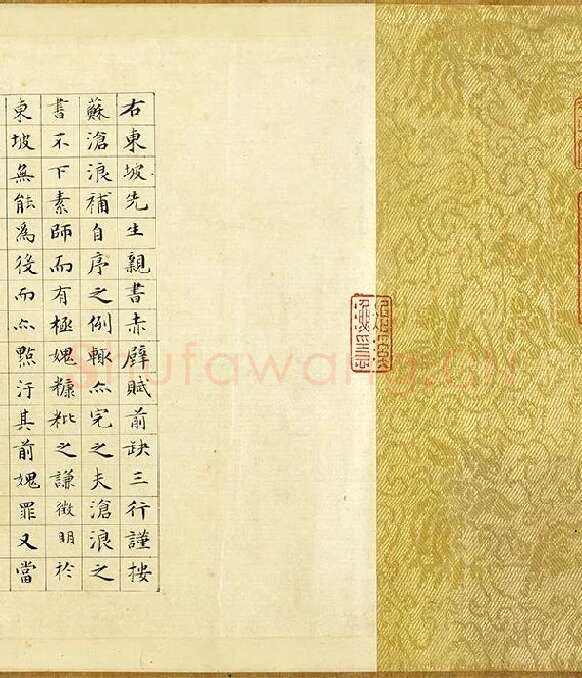 右東坡先生親書赤壁賦前缺三行謹按
蘇滄浪補自序之例輙亦完之夫滄浪之
書不下素師而有極媿糠粃之謙徵明於
東坡無能爲役而亦㸃汙其前媿罪又當